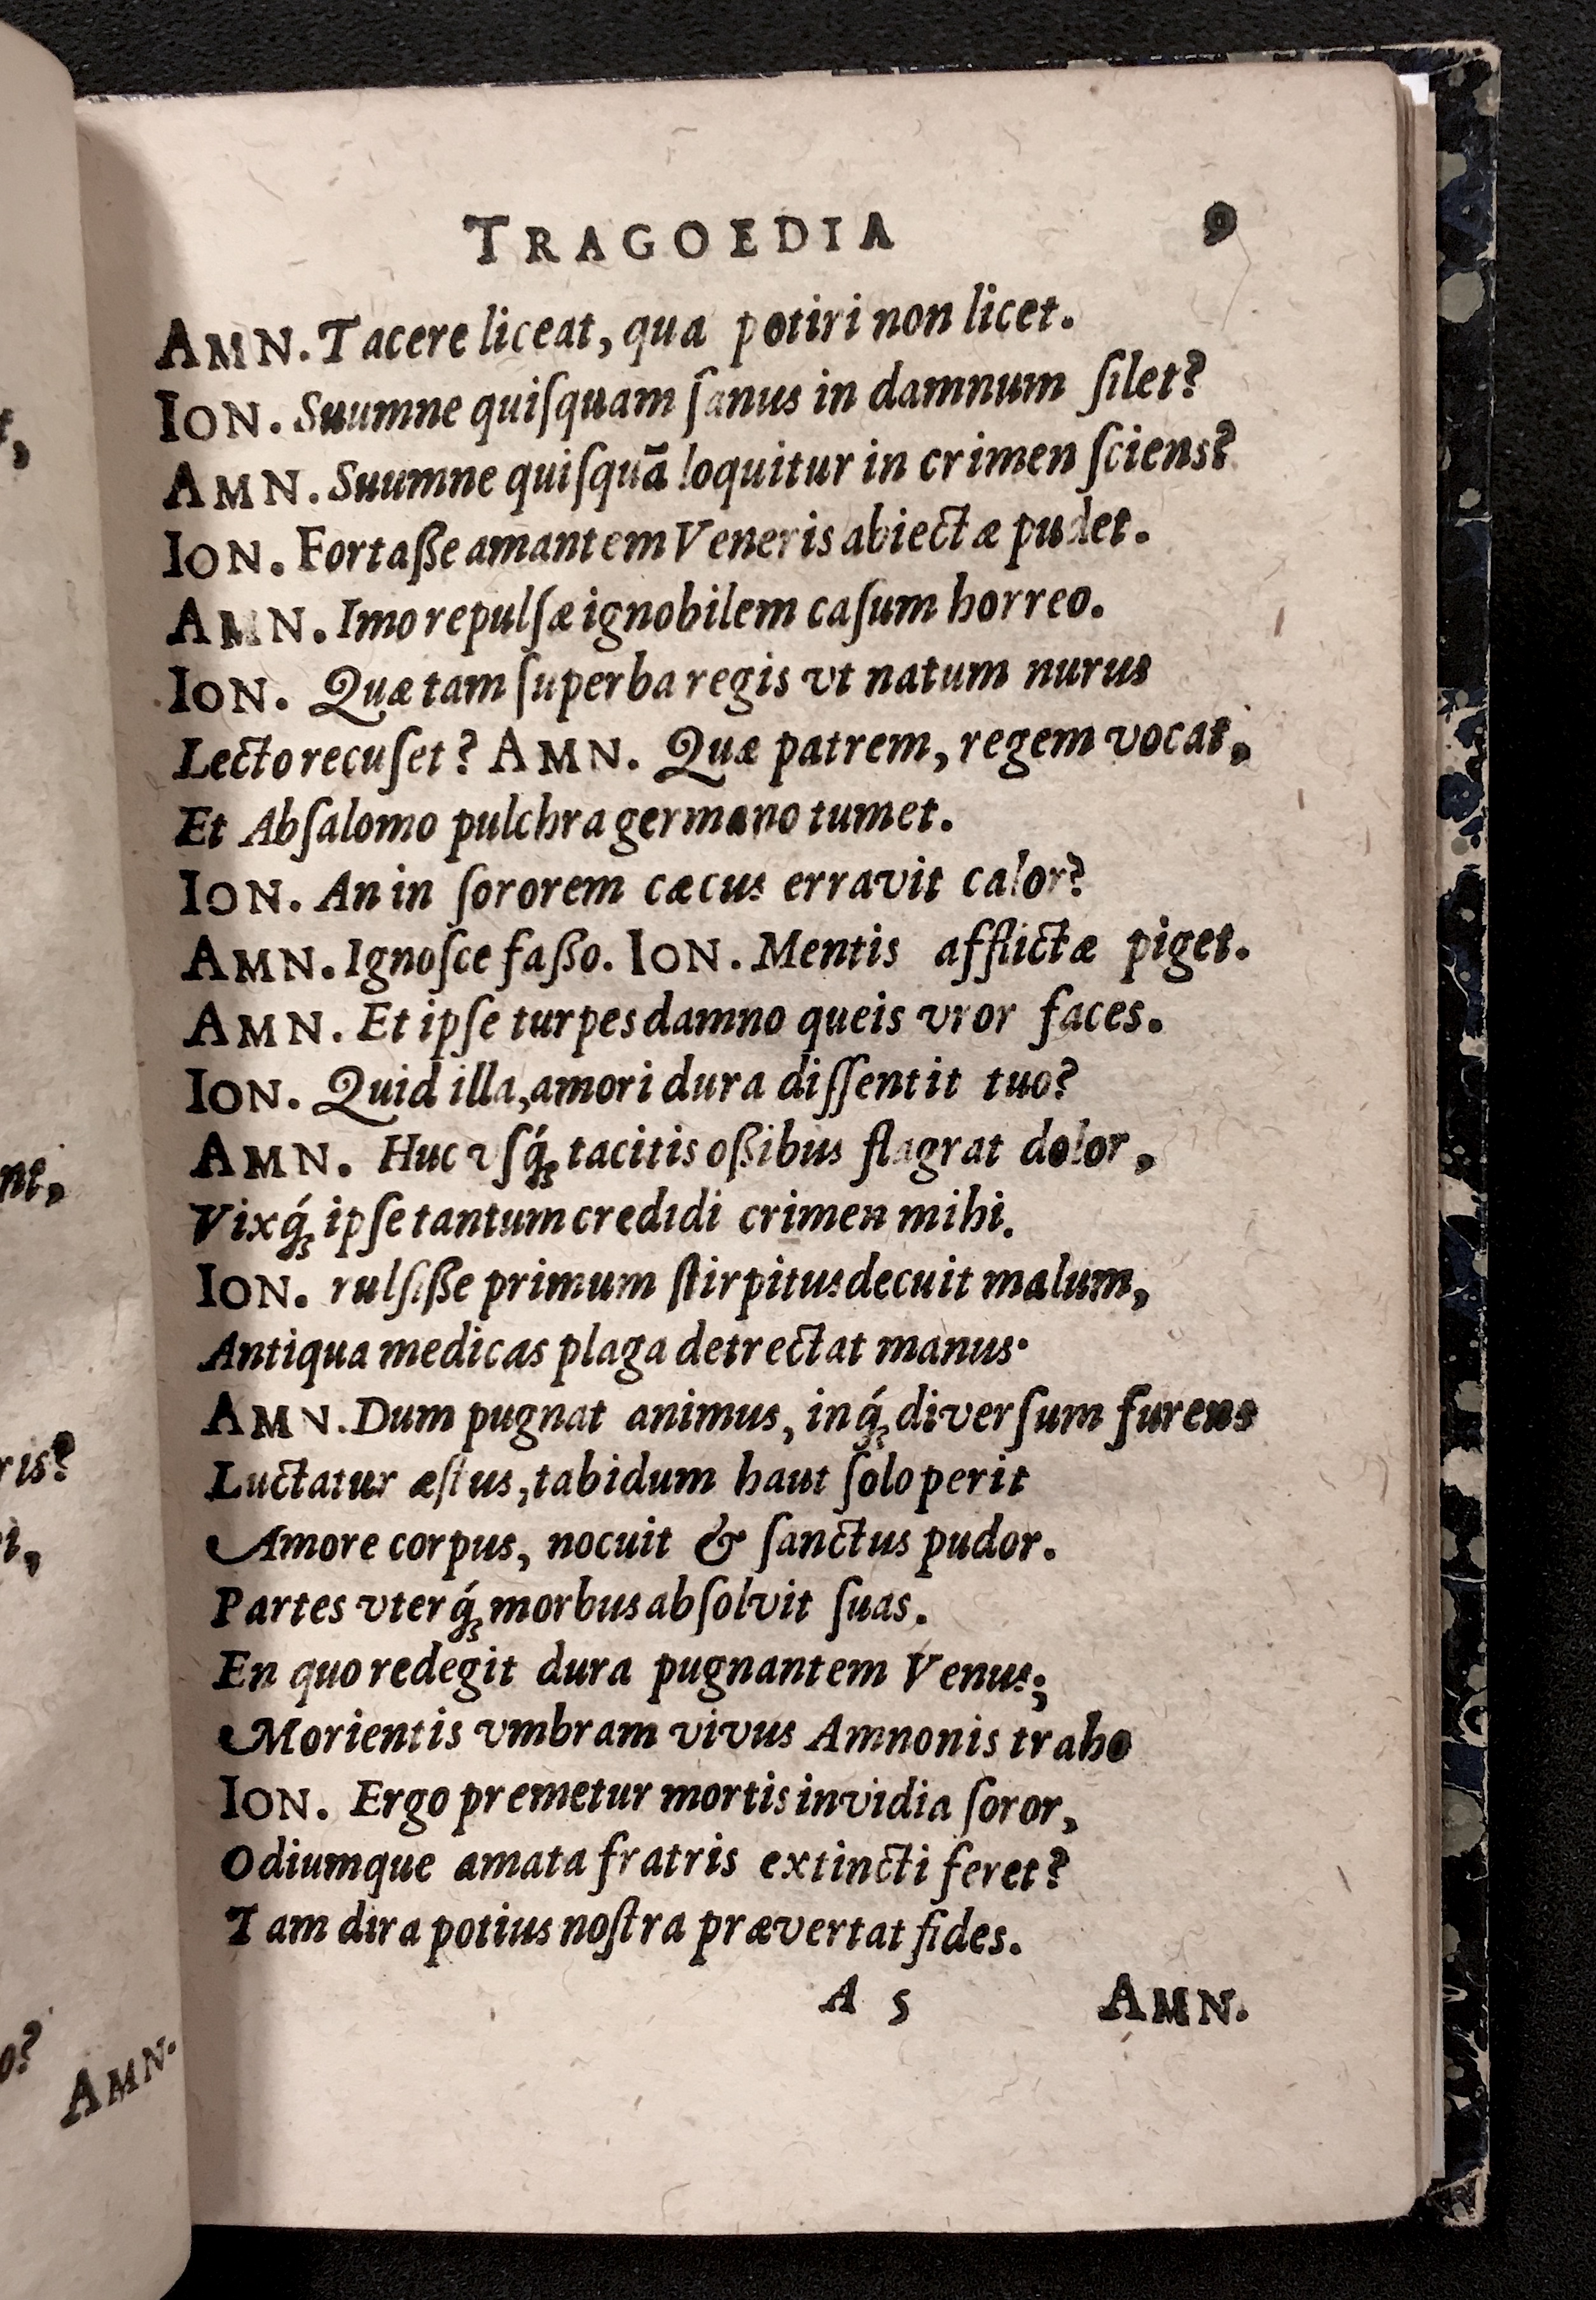 TRAGOEDIA 9
AMN. Tacere liceat, qua potiri non licet.
ION. Suumne quiſquam ſanus in damnum ſilet?
AMN. Suumne quiſquā loquitur in crimen ſciens?
ION. Fortaße amantem Veneris abiectæ pudet.
AMN. Imo repulſæ ignobilem caſum horreo.
ION. Quæ tam ſuperba regis vt natum nurus
Lecto recuſet? AMN. Quæ patrem, regem vocat,
Et Abſalomo pulchra germano tumet.
ION. An in ſororem cæcus erravit calor?
AMN. Ignoſce faßo. ION. Mentis afflictæ piget.
AMN. Et ipſe turpes damno queis vror faces.
ION. Quid illa, amori dura diſſentit tuo?
AMN. Huc vſq́ꝫ tacitis oßibus flagrat dolor,
Vixq́ꝫ ipſe tantum credidi crimen mihi.
ION. rulſiße primum ſtirpitus decuit malum,
Antiqua medicas plaga detrectat manus·
AMN. Dum pugnat animus, inq́ꝫ diverſum furens
Luctatur æſtus, tabidum haut ſolo perit
Amore corpus, nocuit & ſanctus pudor.
Partes vterq́ꝫ morbus abſolvit ſuas.
En quo redegit dura pugnantem Venus;
Morientis vmbram vivus Amnonis traho
ION. Ergo premetur mortis invidia ſoror,
Odiumque amata fratris extincti feret?
Tam dira potius noſtra prævertat fides.
A 5 AMN.
ris?
o?
AMN.